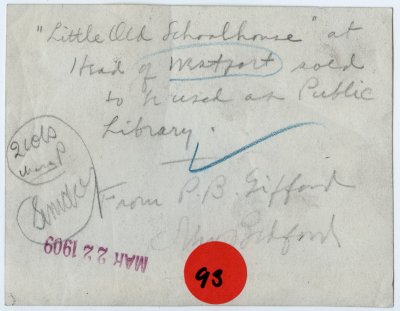 "Little Old Schoolhouse" at
Head of Westport sold
to be used as Public
Library.
2 cols
Sunday
From P. B. Gifford
New Bedford
MAR 22 1909
93